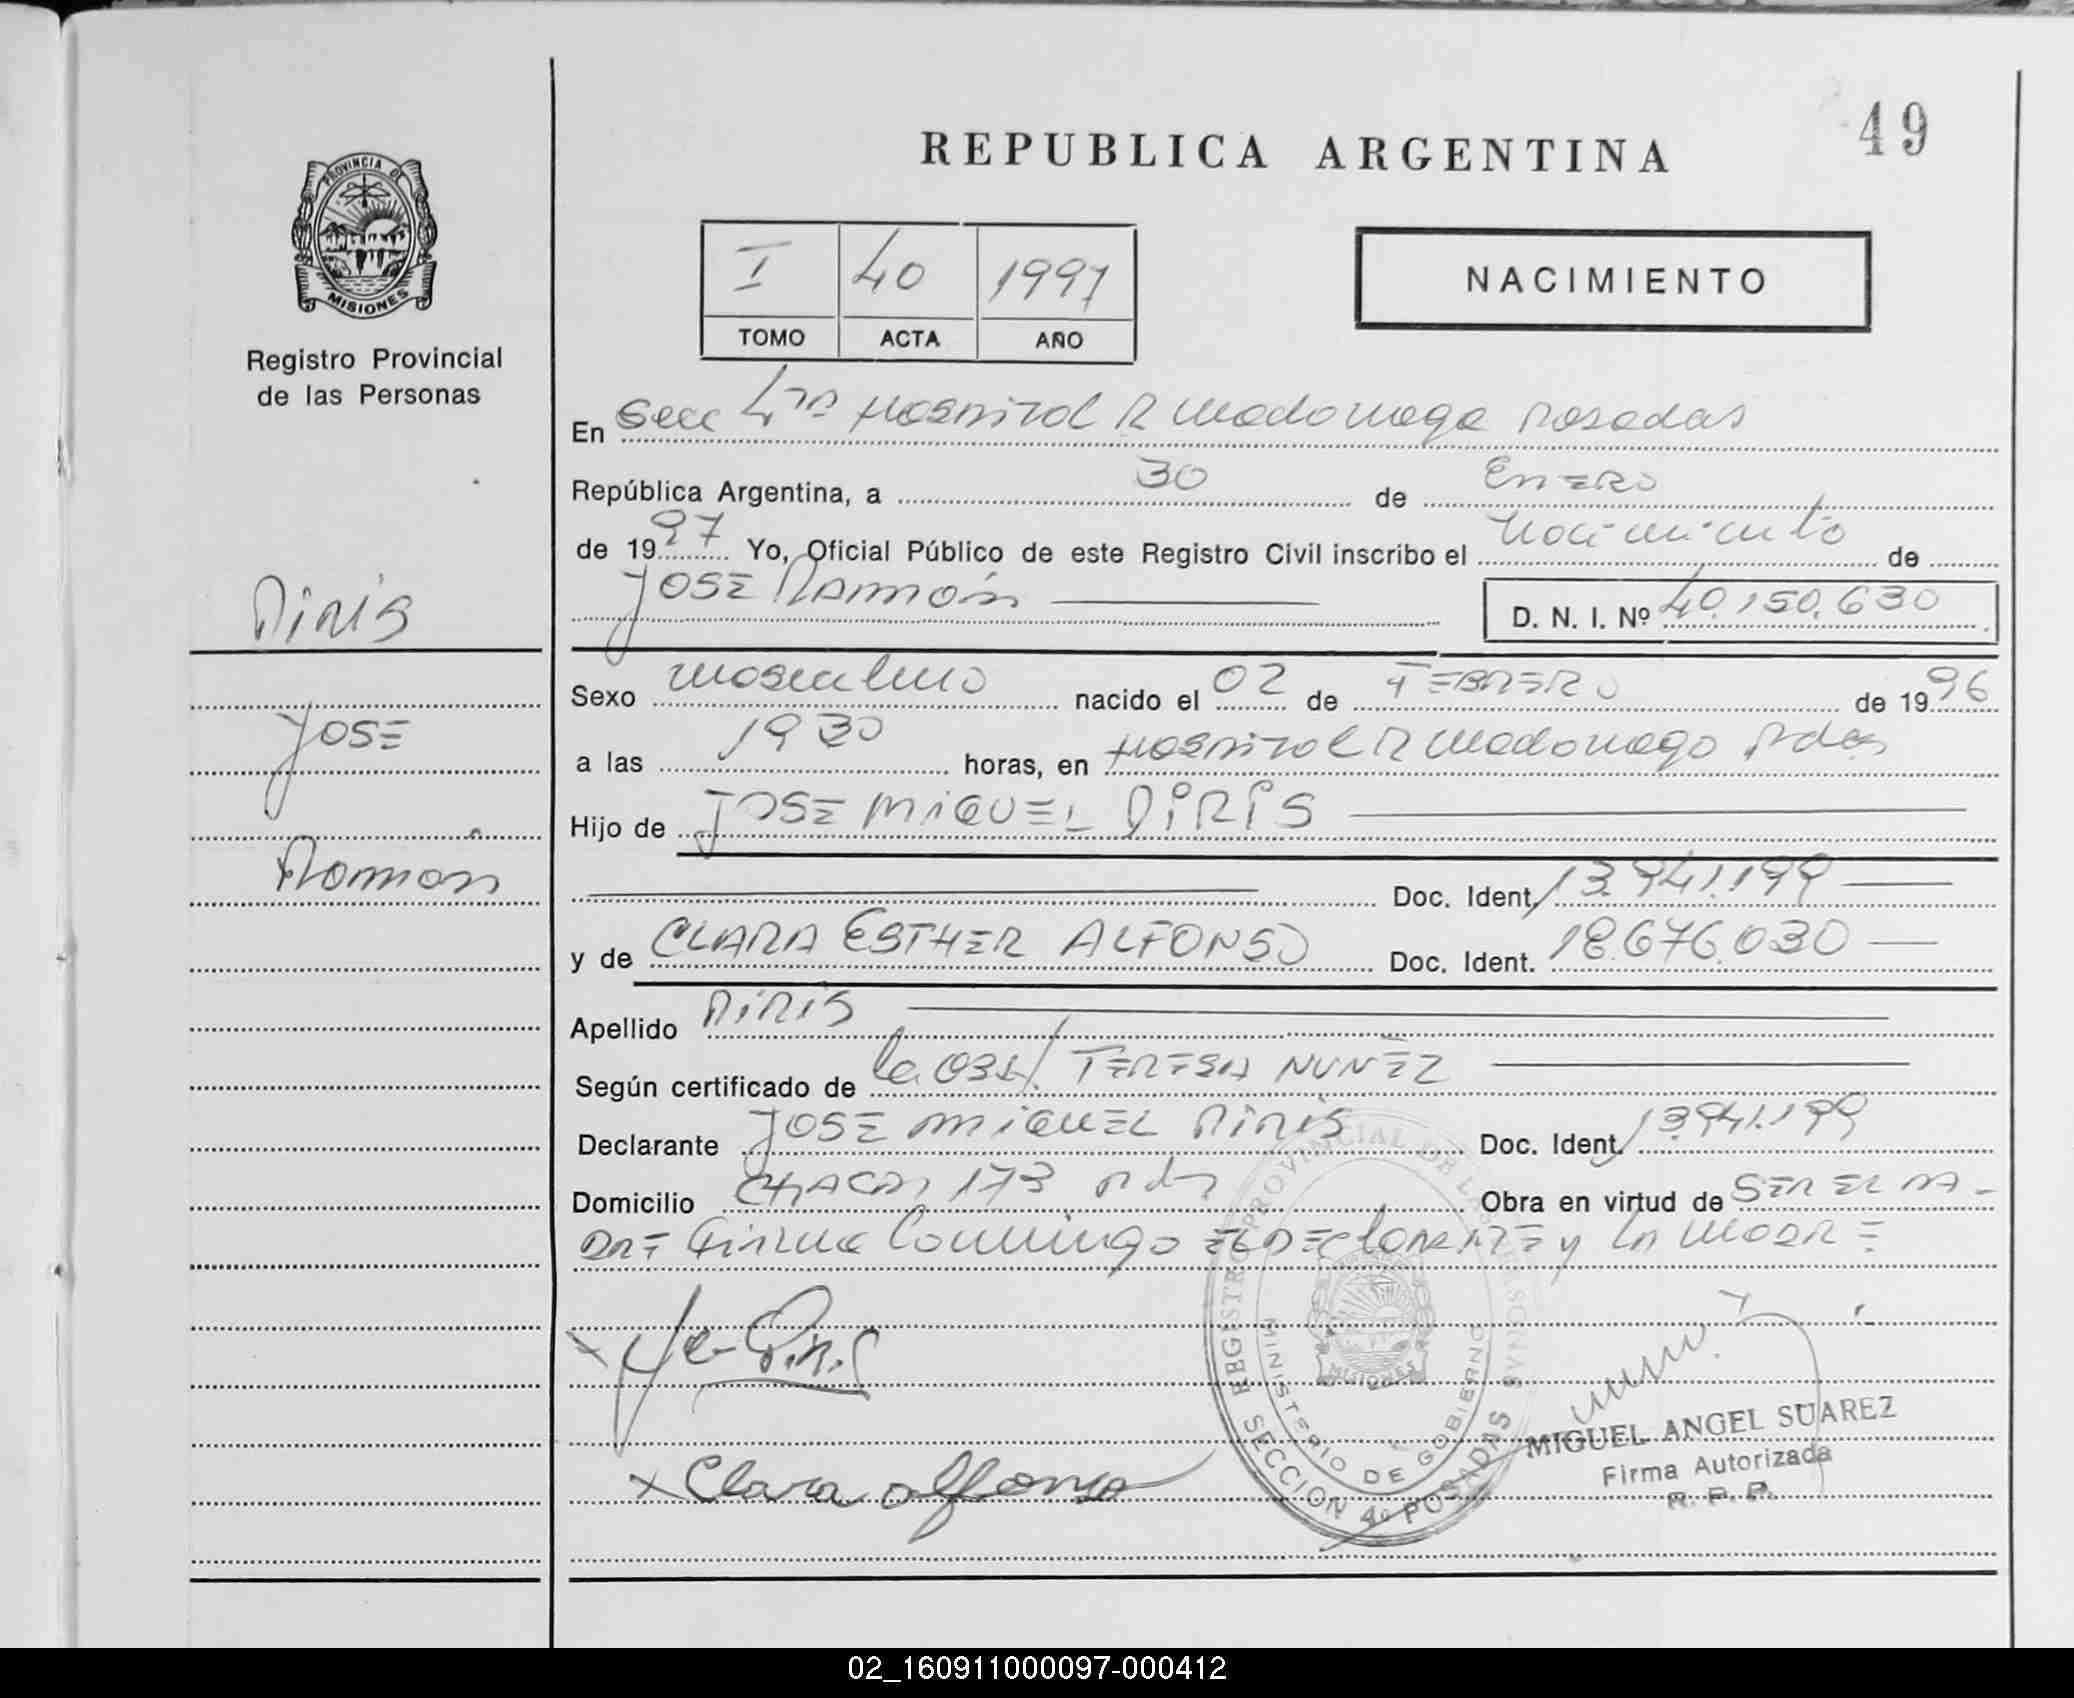 49
REPUBLICA ARGENTINA
PROVINCIA DE
MISIONES
I 40 1997
TOMO ACTA AÑO
NACIMIENTO
Registro Provincial
de las Personas
En Secc 4ta Hospital R Madariaga Posadas
República Argentina, a 30 de ENERO
de 1997 Yo, Oficial Público de este Registro Civil inscribo el nacimiento de
JOSE RAMMÓN D. N. I. Nº 40.150.630
PIRIS
Sexo masculino nacido el 02 de FEBRERO de 1996
JOSE
a las 1930 horas, en Hospital R Madariaga Pdas
Hijo de JOSE MIGUEL PIRIS
Rammón
Doc. Ident. 13.941.199
y de CLARA ESTHER ALFONSO Doc. Ident. 18.676.030
Apellido PIRIS
Según certificado de la Obst/. TERESA NUÑEZ
Declarante JOSE MIGUEL PIRIS Doc. Ident. 13.941.199
Domicilio CHACO 173 Pds Obra en virtud de SER EL PA-
DRE Firma Conmingo EL DECLARANTE y LA MADRE
Piris
x Clara alfonso
REGISTRO PROVINCIAL DE LAS PERSONAS
MINISTERIO DE GOBIERNO
MISIONES
SECCION 4a POSADAS
MIGUEL ANGEL SUAREZ
Firma Autorizada
R. P. P.
02_160911000097-000412